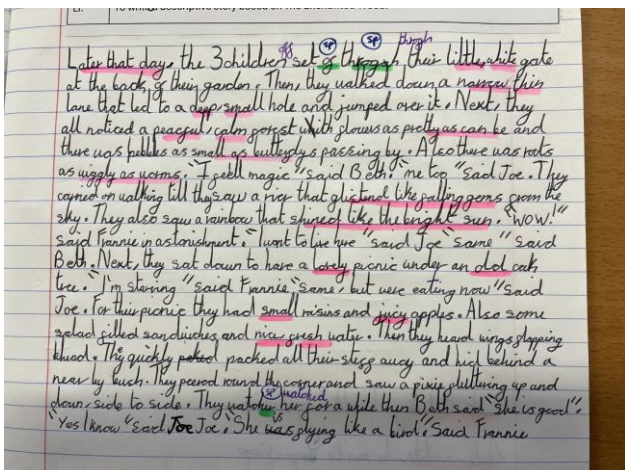 To write a descriptive story based on The Enchanted Wood.
off sp sp through
Later that day, the 3 children set of throgah their little, white gate
at the back of their garden. Then, they walked down a narrow thin
lane that led to a deep, small hole and jumped over it. Next, they
all noticed a peaceful, calm forest with flowers as pretty as can be and
there was pebbles as small as butterflys passing by. Also there was roots
as wiggly as worms. "I feell magic" said Beth. "me too" said Joe. They
carried on walking till they saw a river that glistend like falling gems from the
sky. They also saw a rainbow that shined like the bright sun. "WOW!"
said Frannie in astonishment. "I want to live here" said Joe "same" said
Beth. Next, they sat down to have a lovely picnic under an old oak
tree. "I'm starving" said Frannie "same, but were eating now" said
Joe. For their picnic they had small raisins and juicy apples. Also some
salad filled sandwiches, and nice fresh water. Then they heard wings flapping
ahead. They quickly packed all their stuff away and hid behind a
near by bush. They peered round the corner and saw a pixie fluttering up and
sp watched
down, side to side. They watcher her for a while then Beth said "she is good".
"Yes I know" said Joe Joe. "She is flying like a bird" Said Frannie